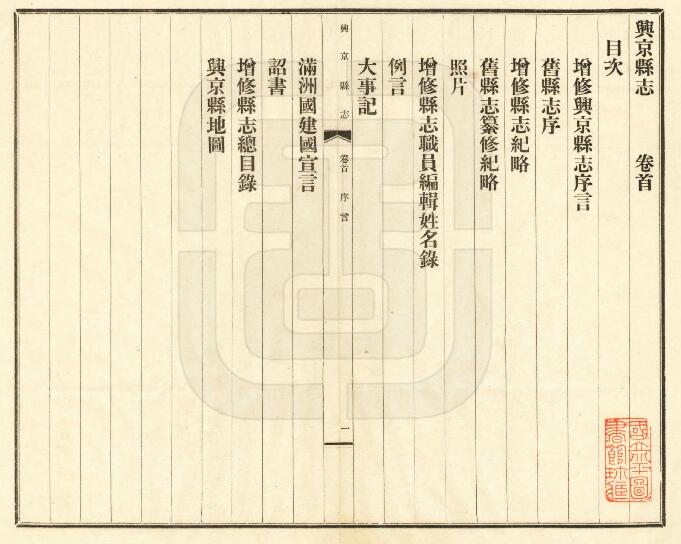 興京縣志　卷首
目次
增修興京縣志序言
舊縣志序
增修縣志紀略
舊縣志纂修紀略
照片
增修縣志職員編輯姓名錄
例言
大事記
興京縣志　卷首　序言　一
滿洲國建國宣言
詔書
增修縣志總目錄
興京縣地圖
國立北平圖書館珍藏